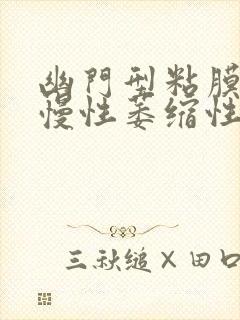 幽門型粘膜
慢性萎縮性
三秋縋×田口